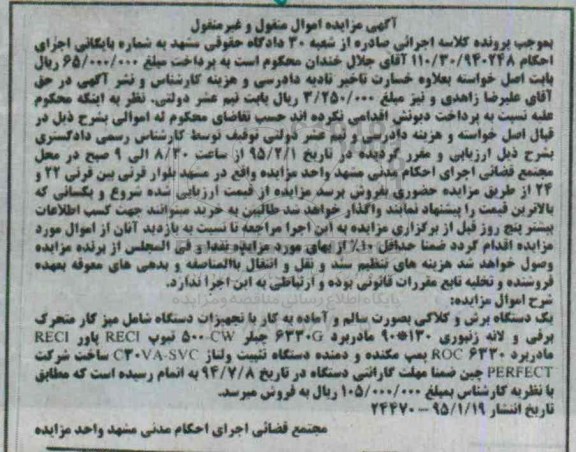 آگهی مزایده اموال منقول و غیرمنقول
بموجب پرونده کلاسه اجرائی صادره از شعبه ۳۰ دادگاه حقوقی مشهد به شماره بایگانی اجرای
احکام ۱۱۰/۳۰/۹۴۰۲۴۸ آقای جلال خندان محکوم است به پرداخت مبلغ ۶۵/۰۰۰/۰۰۰ ریال
بابت اصل خواسته بعلاوه خسارت تاخیر تادیه دادرسی و هزینه کارشناس و نشر آگهی در حق
آقای علیرضا زاهدی و نیز مبلغ ۳/۲۵۰/۰۰۰ ریال بابت نیم عشر دولتی. نظر به اینکه محکوم
علیه نسبت به پرداخت دیونش اقدامی نکرده اند حسب تقاضای محکوم له اموالی بشرح ذیل در
قبال اصل خواسته و هزینه دادرسی و عشر دولتی توقیف توسط کارشناس رسمی دادگستری
بشرح ذیل ارزیابی و مقرر گردیده در تاریخ ۹۵/۲/۱ از ساعت ۸/۳۰ الی ۹ صبح در محل
مجتمع قضائی اجرای احکام مدنی مشهد واحد مزایده واقع در مشهد بلوار قرنی بین قرنی ۲۲ و
۲۴ از طریق مزایده حضوری بفروش برسد مزایده از قیمت ارزیابی شده شروع و بکسانی که
بالاترین قیمت را پیشنهاد نمایند واگذار خواهد شد طالبین به خرید میتوانند جهت کسب اطلاعات
بیشتر پنج روز قبل از برگزاری مزایده به این اجرا مراجعه تا نسبت به بازدید آنان از اموال مورد
مزایده اقدام گردد ضمنا حداقل ۱۰٪ از بهای مورد مزایده نقدا و فی المجلس از برنده مزایده
وصول خواهد شد هزینه های تنظیم سند و نقل و انتقال باالمناصفه و بدهی های معوقه بعهده
فروشنده و تخلیه تابع مقررات قانونی بوده و ارتباطی به این اجرا ندارد.
پایگاه اطلاع رسانی مناقصه و مزایده
شرح اموال مزایده:
یک دستگاه برش و کلاکی بصورت سالم و آماده به کار با تجهیزات دستگاه شامل میز کار متحرک
برقی و لانه زنبوری ۱۳۰*۹۰ مادربرد ۶۳۳۰G چیلر ۵۰۰-CW تیوپ RECI پاور RECI
مادربرد ROC ۶۳۳۰ پمپ مکنده و دمنده دستگاه تثبیت ولتاژ C۳۰VA-SVC ساخت شرکت
PERFECT چین ضمنا مهلت گارانتی دستگاه در تاریخ ۹۴/۷/۸ به اتمام رسیده است که مطابق
با نظریه کارشناس بمبلغ ۱۰۵/۰۰۰/۰۰۰ ریال به فروش میرسد.
تاریخ انتشار ۹۵/۱/۱۹ – ۲۴۴۷۰
مجتمع قضائی اجرای احکام مدنی مشهد واحد مزایده